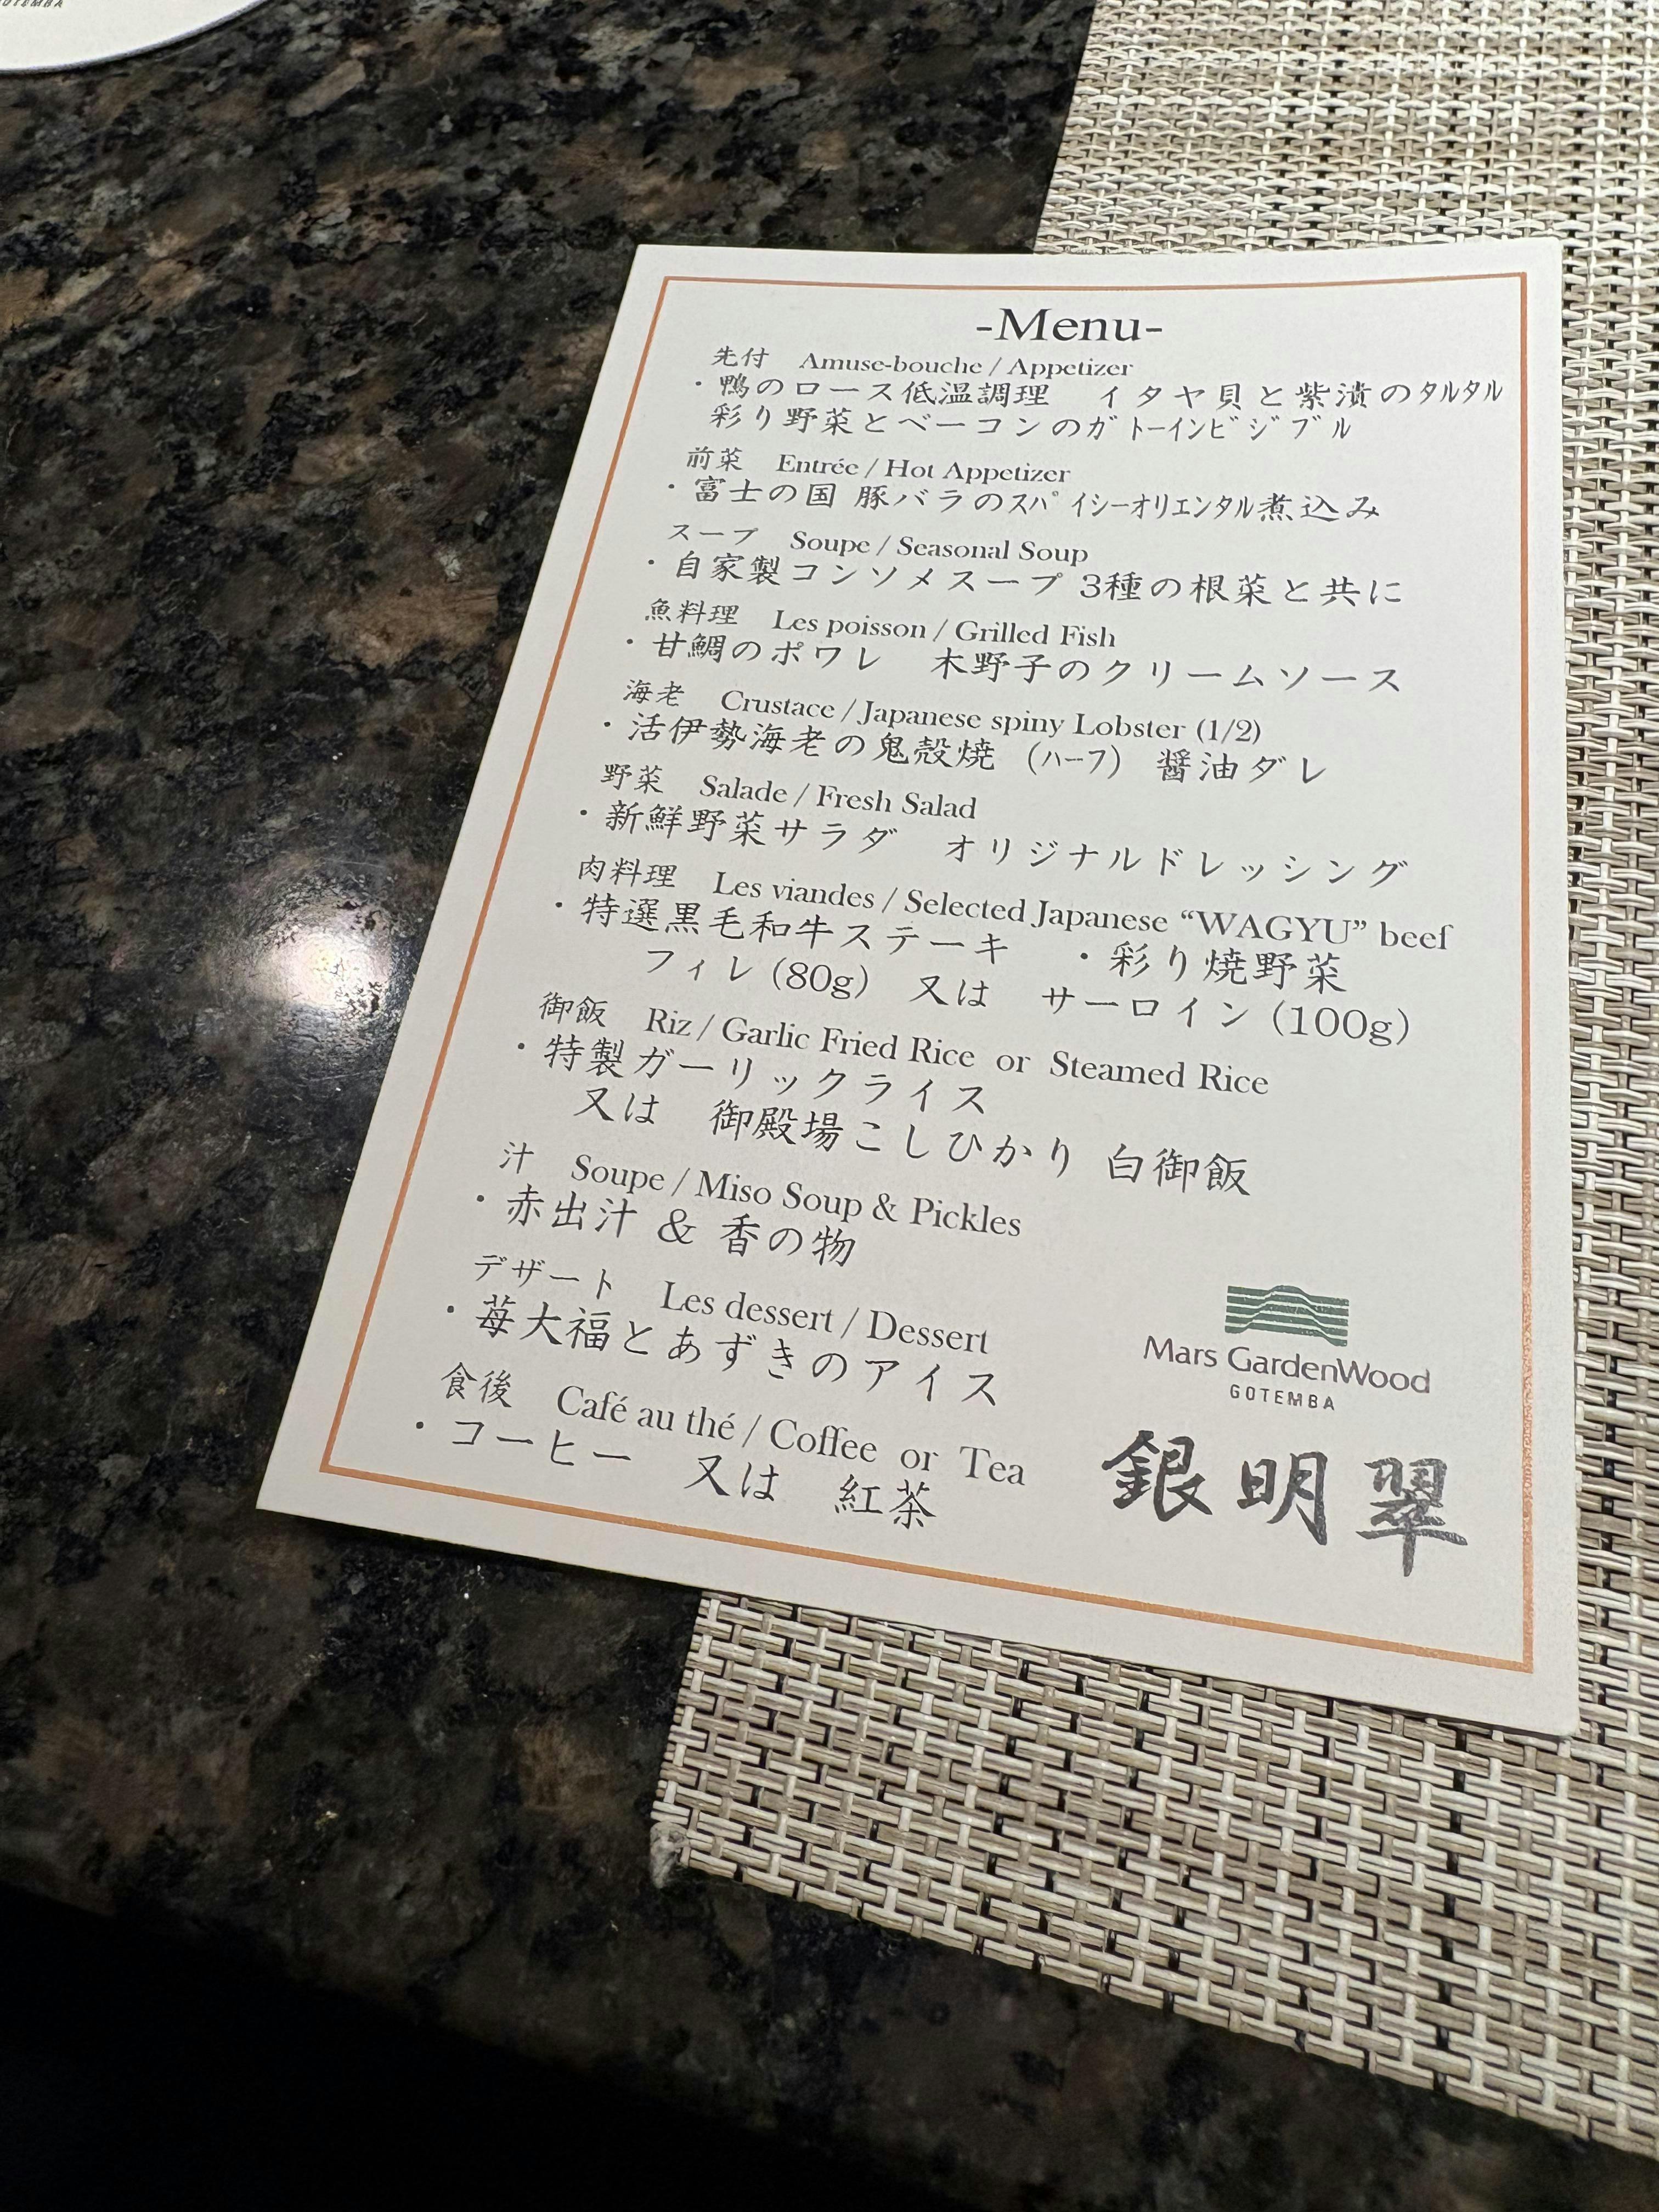 OTEMBA
-Menu-
先付 Amuse-bouche / Appetizer
・鴨のロース低温調理 イタヤ貝と紫漬のﾀﾙﾀﾙ
彩り野菜とベーコンのガﾄｰｲﾝﾋﾞｼﾞﾌﾞﾙ
前菜 Entrée / Hot Appetizer
・富士の国 豚バラのｽﾊﾟｲｼｰｵﾘｴﾝﾀﾙ煮込み
スープ Soupe / Seasonal Soup
・自家製コンソメスープ 3種の根菜と共に
魚料理 Les poisson / Grilled Fish
・甘鯛のポワレ 木野子のクリームソース
海老 Crustace / Japanese spiny Lobster (1/2)
・活伊勢海老の鬼殻焼 (ﾊｰﾌ) 醤油ダレ
野菜 Salade / Fresh Salad
・新鮮野菜サラダ オリジナルドレッシング
肉料理 Les viandes / Selected Japanese “WAGYU” beef
・特選黒毛和牛ステーキ ・彩り焼野菜
フィレ (80g) 又は サーロイン (100g)
御飯 Riz / Garlic Fried Rice or Steamed Rice
・特製ガーリックライス
又は 御殿場こしひかり 白御飯
汁 Soupe / Miso Soup & Pickles
・赤出汁 & 香の物
デザート Les dessert / Dessert
・苺大福とあずきのアイス
食後 Café au thé / Coffee or Tea
・コーヒー 又は 紅茶
Mars GardenWood
GOTEMBA
銀明翠